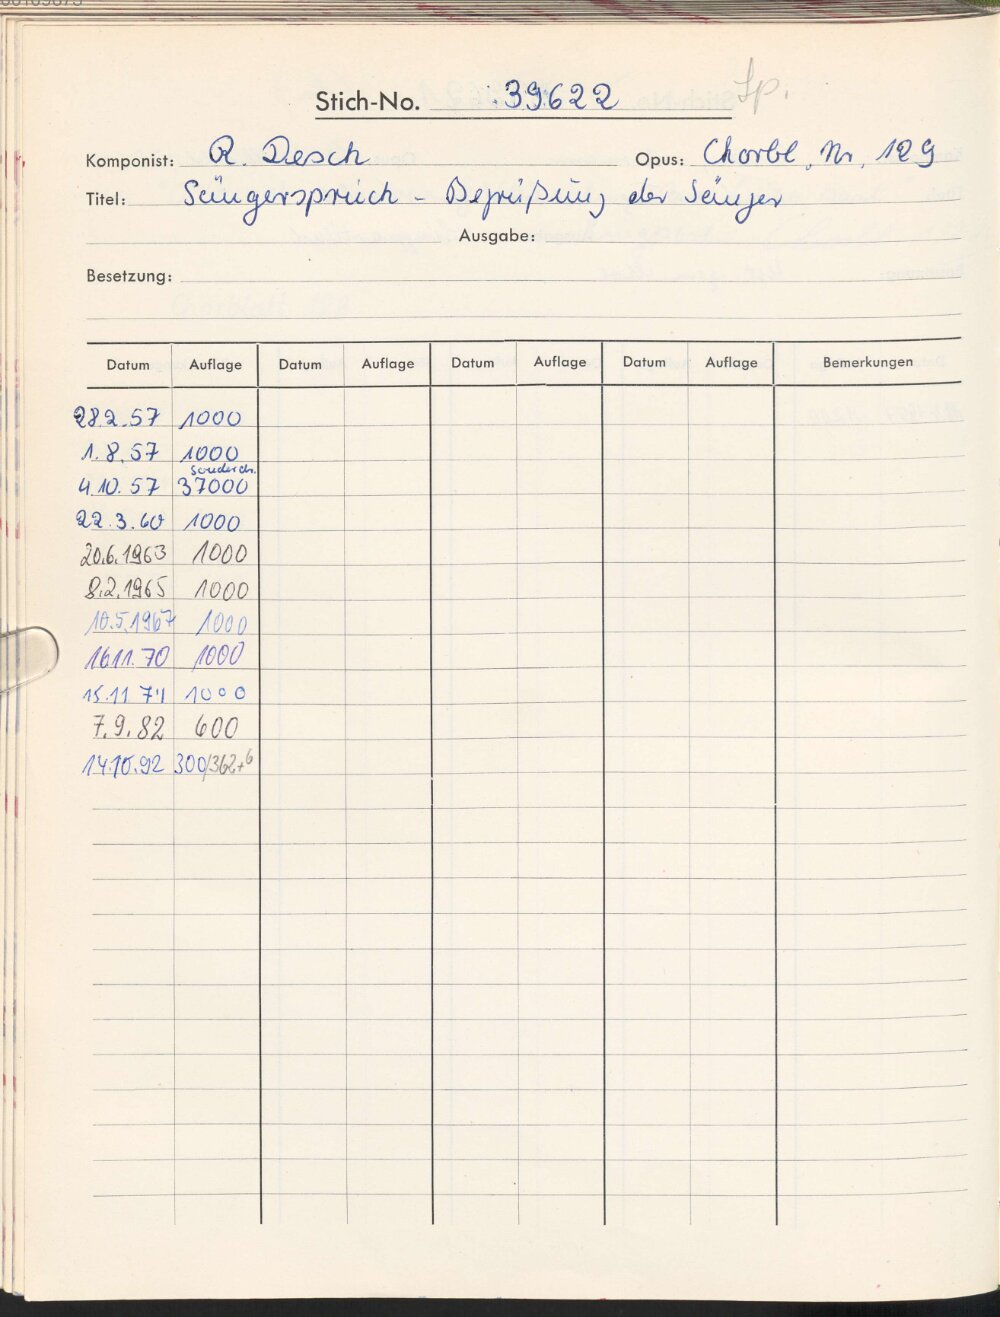 Stich-No. 39622 Sp.
Komponist: R. Desch Opus: Chorbl. Nr. 129
Titel: Sängerspruch - Begrüßung der Sänger
Ausgabe:
Besetzung:
Datum Auflage Datum Auflage Datum Auflage Datum Auflage Bemerkungen
28.2.57 1000
1.8.57 1000
sonderdr.
4.10.57 37000
22.3.60 1000
20.6.1963 1000
8.2.1965 1000
10.5.1967 1000
16.11.70 1000
15.11.71 1000
7.9.82 600
14.10.92 300/362+6